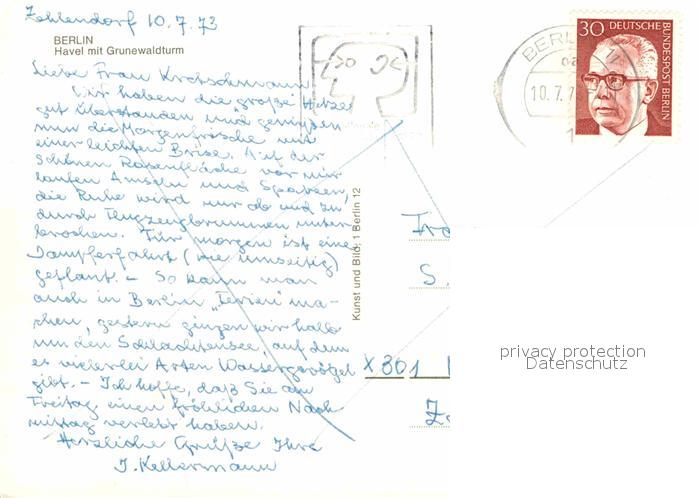 Zehlendorf 10.7.73
BERLIN
Havel mit Grunewaldturm
Liebe Frau
Wir haben die große Hitze
gut überstanden und genießen
nun die Morgenfrische mit
einer leichten Brise. Auf der
schönen Rasenfläche vor mir
laufen Amseln und Spatzen,
die Ruhe wird nur ab und zu
durch Flugzeugbrummen unter-
brochen. Für morgen ist eine
Dampferfahrt (wie umseitig)
geplant. – So kann man
auch in Berlin "Ferien" ma-
chen, gestern gingen wir halb
um den Schlachtensee, auf dem
es vielerlei Arten Wassergevögel
gibt. – Ich hoffe, daß Sie am
Freitag einen fröhlichen Nach-
mittag verlebt haben.
Herzliche Grüße Ihre
J. Kellermann
Kunst und Bild, 1 Berlin 12
BERLIN
10.7.73
30 DEUTSCHE
BUNDESPOST BERLIN
S.
X 801
privacy protection
Datenschutz